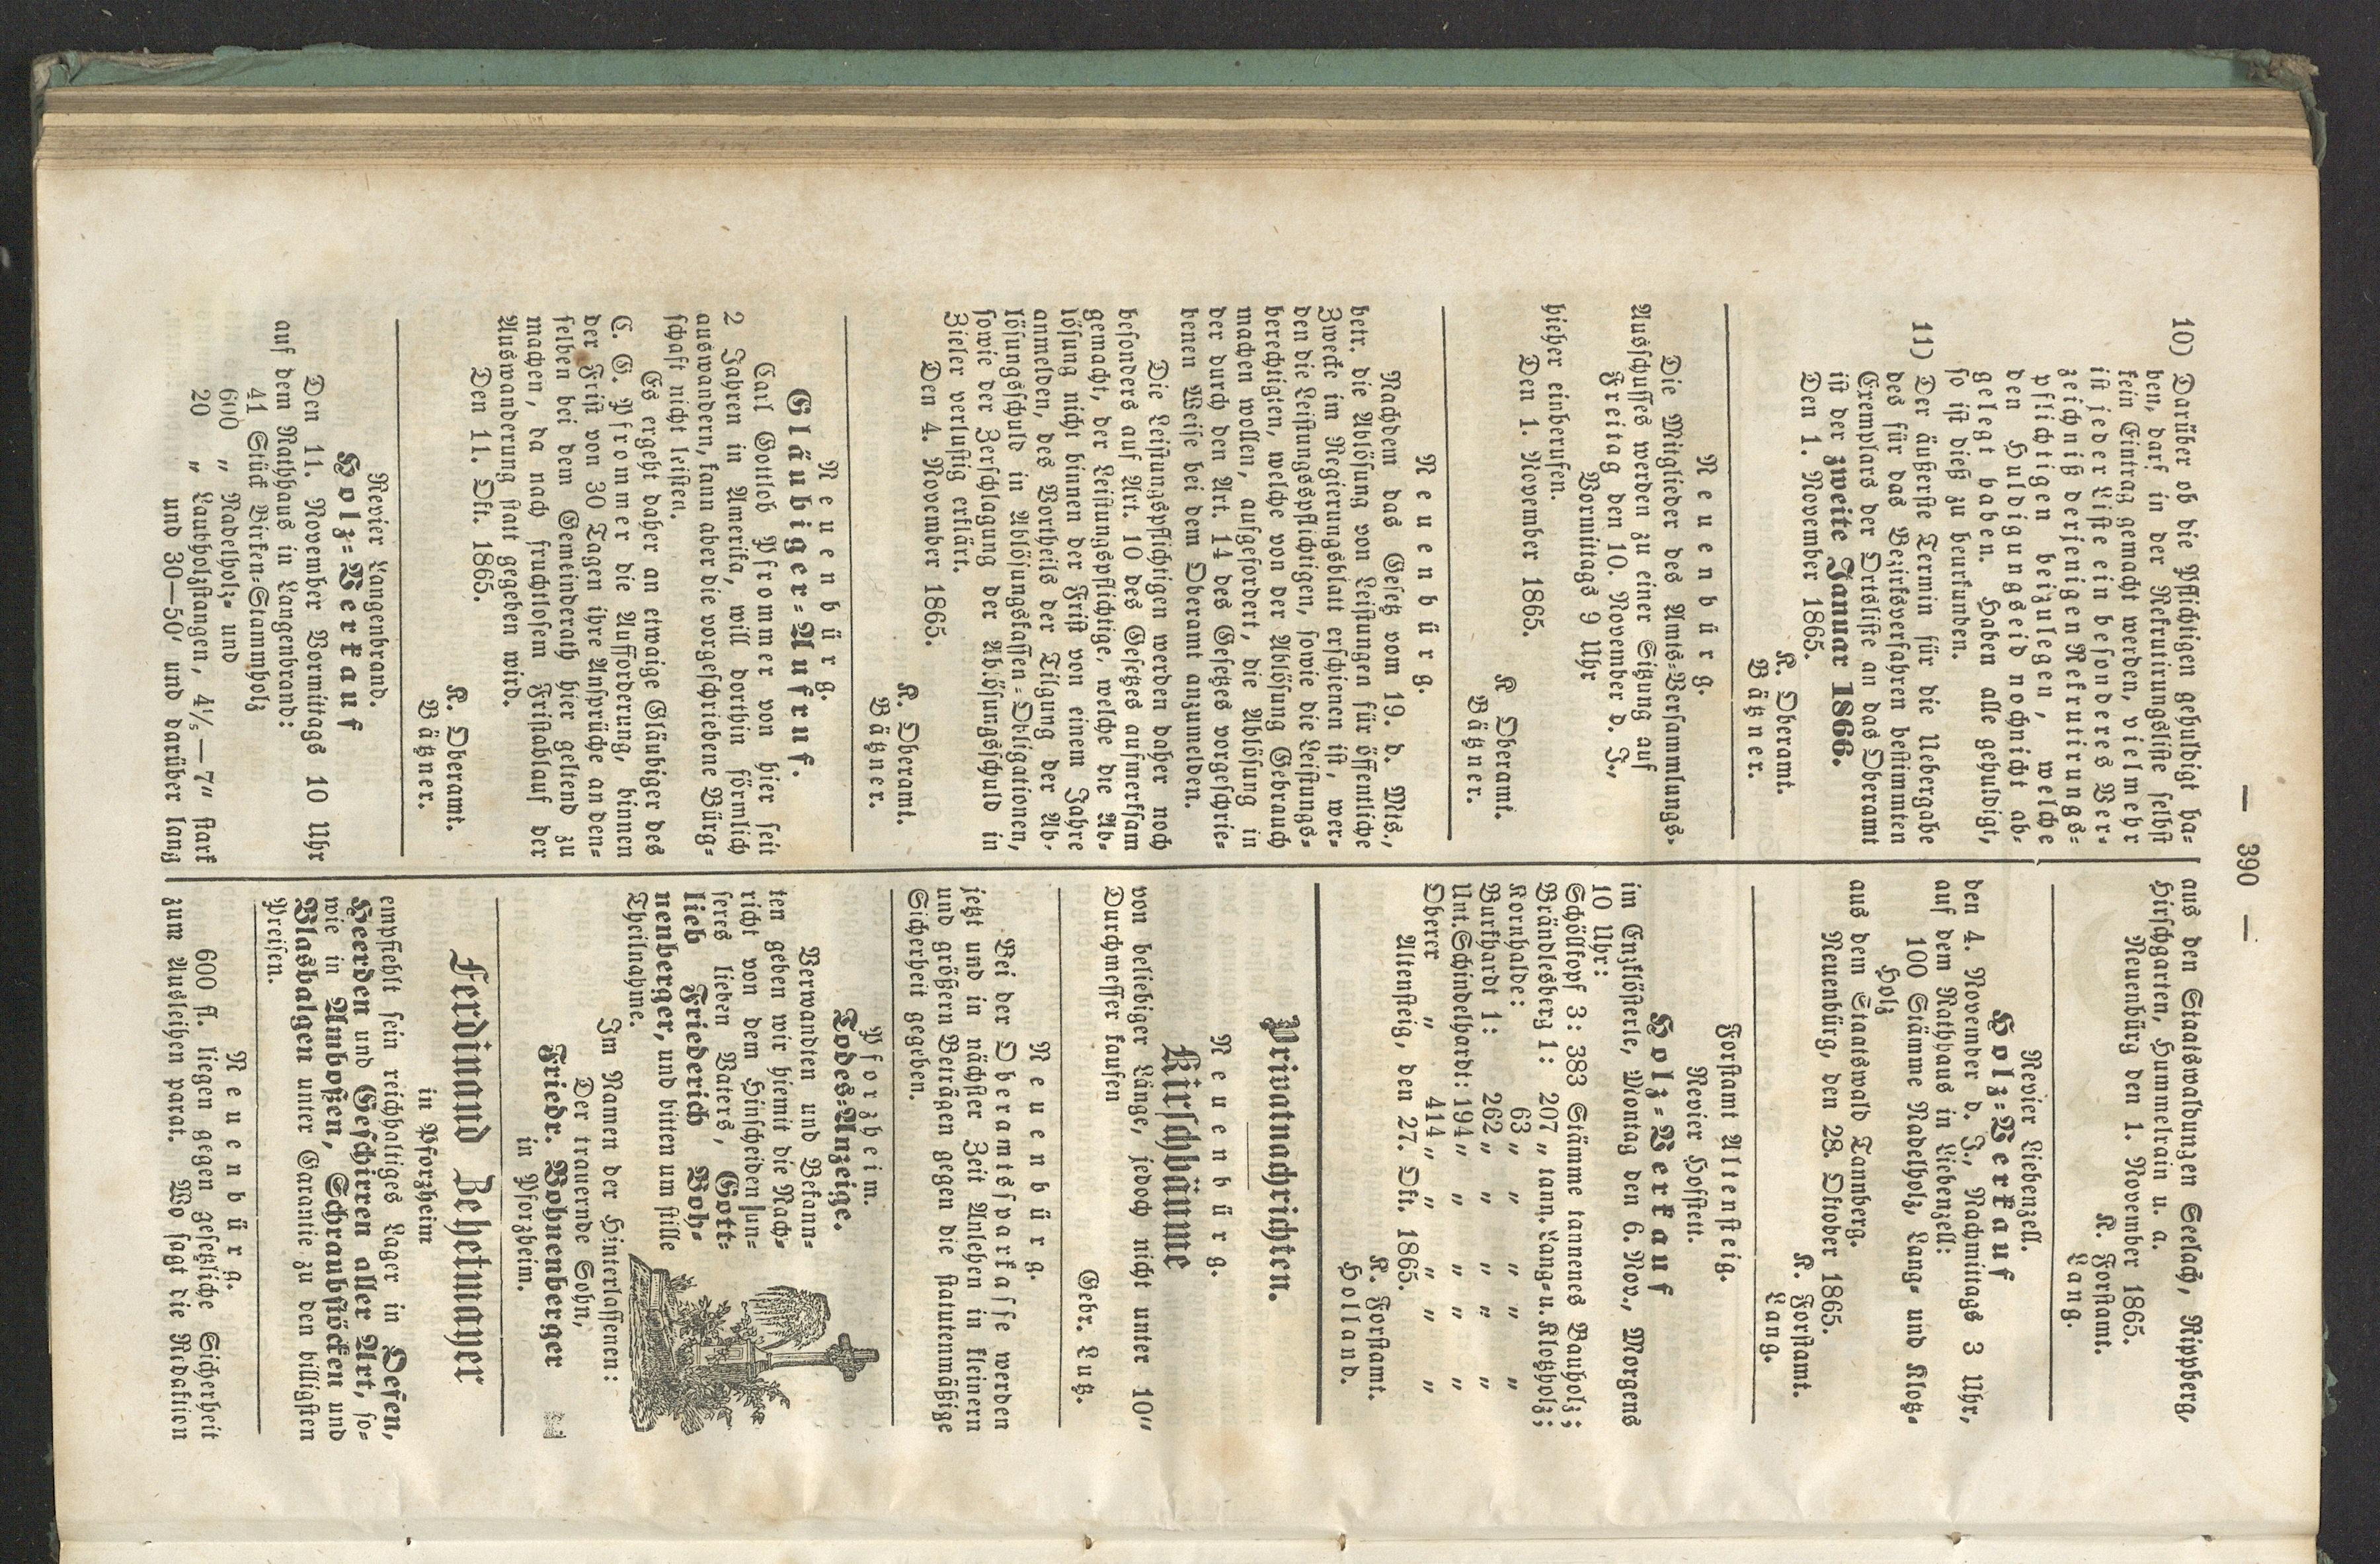 — 390 —
10) Darüber ob die Pflichtigen gehuldigt ha-
ben, darf in der Rekrutirungsliste selbst
kein Eintrag gemacht werden, vielmehr
ist jeder Liste ein besonderes Ver-
zeichniß derjenigen Rekrutirungs-
pflichtigen beizulegen, welche
den Huldigungseid noch nicht ab-
gelegt haben. Haben alle gehuldigt,
so ist dieß zu beurkunden.
11) Der äußerste Termin für die Uebergabe
des für das Bezirksverfahren bestimmten
Exemplars der Ortsliste an das Oberamt
ist der zweite Januar 1866.
Den 1. November 1865.
K. Oberamt.
Bätzner.
Neuenbürg.
Die Mitglieder des Amts-Versammlungs-
Ausschusses werden zu einer Sitzung auf
Freitag den 10. November d. J.,
Vormittags 9 Uhr
hieher einberufen.
Den 1. November 1865.
K Oberamt.
Bätzner.
Neuenbürg.
Nachdem das Gesetz vom 19. d. Mts.,
betr. die Ablösung von Leistungen für öffentliche
Zwecke im Regierungsblatt erschienen ist, wer-
den die Leistungspflichtigen, sowie die Leistungs-
berechtigten, welche von der Ablösung Gebrauch
machen wollen, aufgefordert, die Ablösung in
der durch den Art. 14 des Gesetzes vorgeschrie-
benen Weise bei dem Oberamt anzumelden.
Die Leistungspflichtigen werden daher noch
besonders auf Art. 10 des Gesetzes aufmerksam
gemacht, der Leistungspflichtige, welche die Ab-
lösung nicht binnen der Frist von einem Jahre
anmelden, des Vortheils der Tilgung der Ab-
lösungsschuld in Ablösungskassen-Obligationen,
sowie der Zerschlagung der Ablösungsschuld in
Zieler verlustig erklärt.
Den 4. November 1865.
K. Oberamt.
Bätzner.
Neuenbürg.
Gläubiger-Aufruf.
Carl Gottlob Pfrommer von hier seit
2 Jahren in Amerika, will dorthin förmlich
auswandern, kann aber die vorgeschriebene Bürg-
schaft nicht leisten.
Es ergeht daher an etwaige Gläubiger des
C. G. Pfrommer die Aufforderung, binnen
der Frist von 30 Tagen ihre Ansprüche an den-
selben bei dem Gemeinderath hier geltend zu
machen, da nach fruchtlosem Fristablauf der
Auswanderung statt gegeben wird.
Den 11. Okt. 1865.
K. Oberamt.
Bätzner.
Revier Langenbrand.
Holz-Verkauf
Den 11. November Vormittags 10 Uhr
auf dem Rathhaus in Langenbrand:
41 Stück Birken-Stammholz
600 „ Nadelholz- und
20 „ Laubholzstangen, 4½—7" stark
und 30—50' und darüber lang
aus den Staatswaldungen Seelach, Rippberg,
Hirschgarten, Hummelrain u. a.
Neuenbürg den 1. November 1865.
K. Forstamt.
Lang.
Revier Liebenzell.
Holz-Verkauf
den 4. November d. J., Nachmittags 3 Uhr,
auf dem Rathhaus in Liebenzell:
100 Stämme Nadelholz, Lang- und Klotz-
Holz
aus dem Staatswald Tannberg.
Neuenbürg, den 28. Oktober 1865.
K. Forstamt.
Lang.
Forstamt Altensteig.
Revier Hofstett.
Holz-Verkauf
im Enzklösterle, Montag den 6. Nov., Morgens
10 Uhr:
Schöllkopf 3: 383 Stämme tannenes Bauholz;
Brändlesberg 1: 207 „ tann. Lang- u. Klotzholz;
Kornhalde: 63 „ „ „ „
Burkhardt 1: 262 „ „ „ „ „
Unt. Schindelhardt: 194 „ „ „ „ „
Oberer „ 414 „ „ „ „ „
Altensteig, den 27. Okt. 1865.
K. Forstamt.
Holland.
Privatnachrichten.
Neuenbürg.
Kirschbäume
von beliebiger Länge, jedoch nicht unter 10"
Durchmesser kaufen
Gebr. Lutz.
Neuenbürg.
Bei der Oberamtssparkasse werden
jetzt und in nächster Zeit Anlehen in kleinern
und größern Beträgen gegen die statutenmäßige
Sicherheit gegeben.
Pforzheim.
Todes-Anzeige.
Verwandten und Bekann-
ten geben wir hiemit die Nach-
richt von dem Hinscheiden un-
seres lieben Vaters, Gott-
lieb Friederich Boh-
nenberger, und bitten um stille
Theilnahme.
Im Namen der Hinterlassenen:
Der trauernde Sohn,
Friedr. Bohnenberger
in Pforzheim.
Ferdinand Zehetmayer
in Pforzheim
empfiehlt sein reichhaltiges Lager in Oefen,
Heerden und Geschirren aller Art, so-
wie in Amboßen, Schraubstöcken und
Blasbalgen unter Garantie zu den billigsten
Preisen.
Neuenbürg.
600 fl. liegen gegen gesetzliche Sicherheit
zum Ausleihen parat. Wo sagt die Redaktion